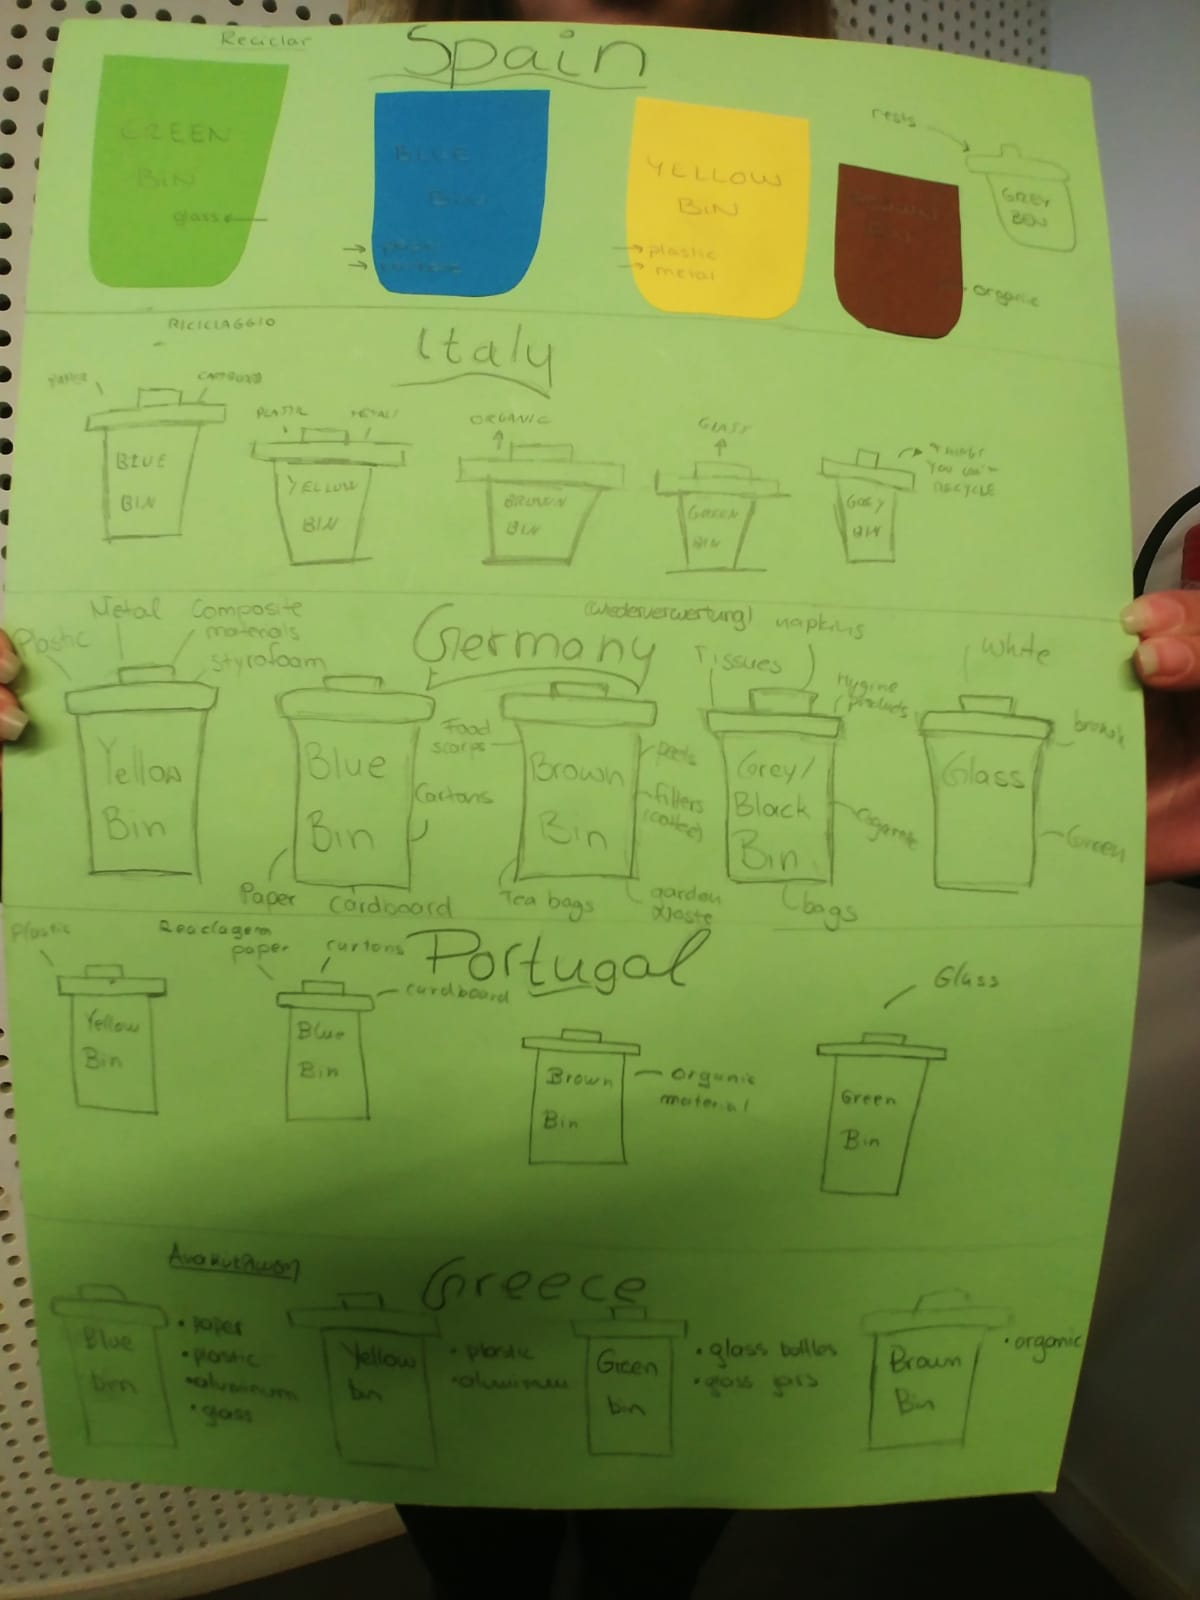 Reciclar
Spain
GREEN
BIN
glass
BLUE
YELLOW
BIN
plastic
metal
rests
GREY
organic
RICICLAGGIO
Italy
BLUE
BIN
METALS
YELLOW
BIN
ORGANIC
BROWN
BIN
GLASS
GREEN
BIN
THINGS
YOU CAN'T
RECYCLE
BIN
Germany
(Wiederverwertung)
Plastic
Metal
Composite
materials
styrofoam
Yellow
Bin
Blue
Bin
Cartons
Paper
Cardboard
Food
scarps
Brown
Bin
peels
filters
(coffee)
Tea bags
garden
waste
Tissues
napkins
Hygine
products
Grey/
Black
Bin
bags
White
Glass
Green
Portugal
Reciclagem
Plastic
Yellow
Bin
paper
curtons
curdboard
Blue
Bin
Brown
Bin
organic
material
Glass
Green
Bin
Greece
Blue
bin
• paper
• plastic
• aluminum
• glass
Yellow
bin
• plastic
Green
bin
• glass bottles
• glass jars
Brown
Bin
• organic